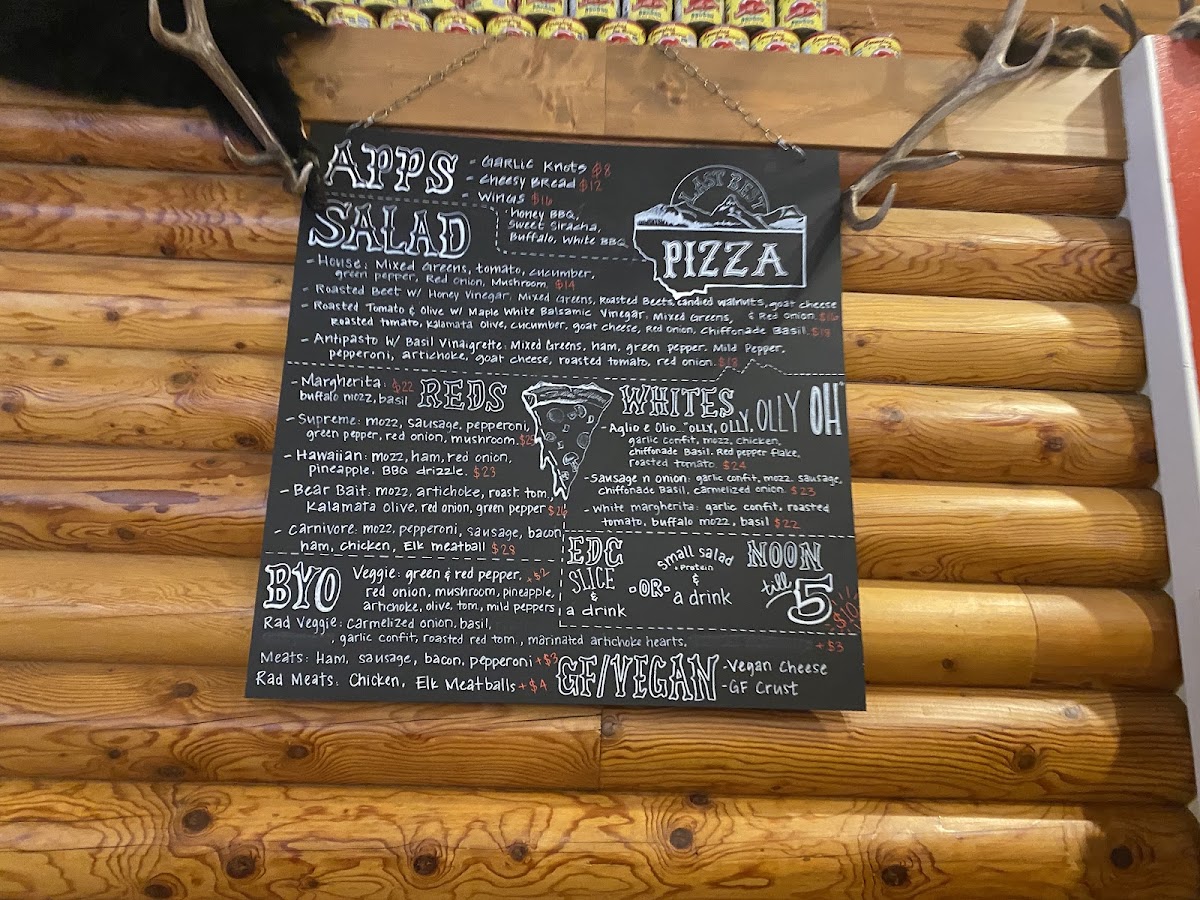 APPS
- Garlic Knots $8
- Cheesy Bread $12
- Wings $16
honey BBQ,
Sweet Siracha,
Buffalo, White BBQ
LAST BEST
PIZZA
SALAD
- House: Mixed Greens, tomato, cucumber,
green pepper, Red Onion, Mushroom. $14
- Roasted Beet w/ Honey Vinegar: Mixed Greens, Roasted Beets, candied walnuts, goat cheese
& Red Onion.
- Roasted Tomato & Olive w/ Maple White Balsamic Vinegar: Mixed Greens,
Roasted tomato, Kalamata Olive, cucumber, goat cheese, Red Onion, Chiffonade Basil.
- Antipasto w/ Basil Vinaigrette: Mixed Greens, ham, green pepper, Mild Pepper,
pepperoni, artichoke, goat cheese, roasted tomato, red onion. $18
REDS
- Margherita: $22
buffalo mozz, basil
- Supreme: mozz, sausage, pepperoni,
green pepper, red onion, mushroom.
- Hawaiian: mozz, ham, red onion,
pineapple, BBQ drizzle. $23
- Bear Bait: mozz, artichoke, roast. tom,
Kalamata Olive, red onion, green pepper
- Carnivore: mozz, pepperoni, sausage, bacon,
ham, chicken, Elk meatball $28
WHITES
OLLY OH
- Aglio e Olio... "OLLY, OLLY,
garlic confit, mozz, chicken,
chiffonade Basil, Red pepper flake,
roasted tomato. $24
- Sausage n onion: garlic confit, mozz, sausage,
chiffonade Basil, carmelized onion. $23
- White margherita: garlic confit, roasted
tomato, buffalo mozz, basil $22
EDC
SLICE
&
a drink
-OR-
small salad
+ Protein
&
a drink
NOON
till 5
$10
BYO
Veggie: green & red pepper, +$2
red onion, mushroom, pineapple,
artichoke, olive, tom, mild peppers
Rad Veggie: Carmelized onion, basil,
, garlic confit, roasted red tom., marinated artichoke hearts. +$3
Meats: Ham, sausage, bacon, pepperoni +$3
Rad Meats: Chicken, Elk Meatballs +$4
GF/VEGAN
- Vegan Cheese
- GF Crust